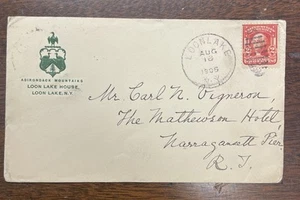 ADIRONDACK MOUNTAINS
LOON LAKE HOUSE,
LOON LAKE, N.Y.
LOON LAKE
AUG
16
1905
N.Y.
Mr. Carl N. Vigneron,
The Mathewson Hotel,
Narragansett Pier,
R. I.